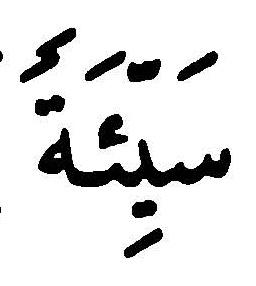 سَيِّئَةً